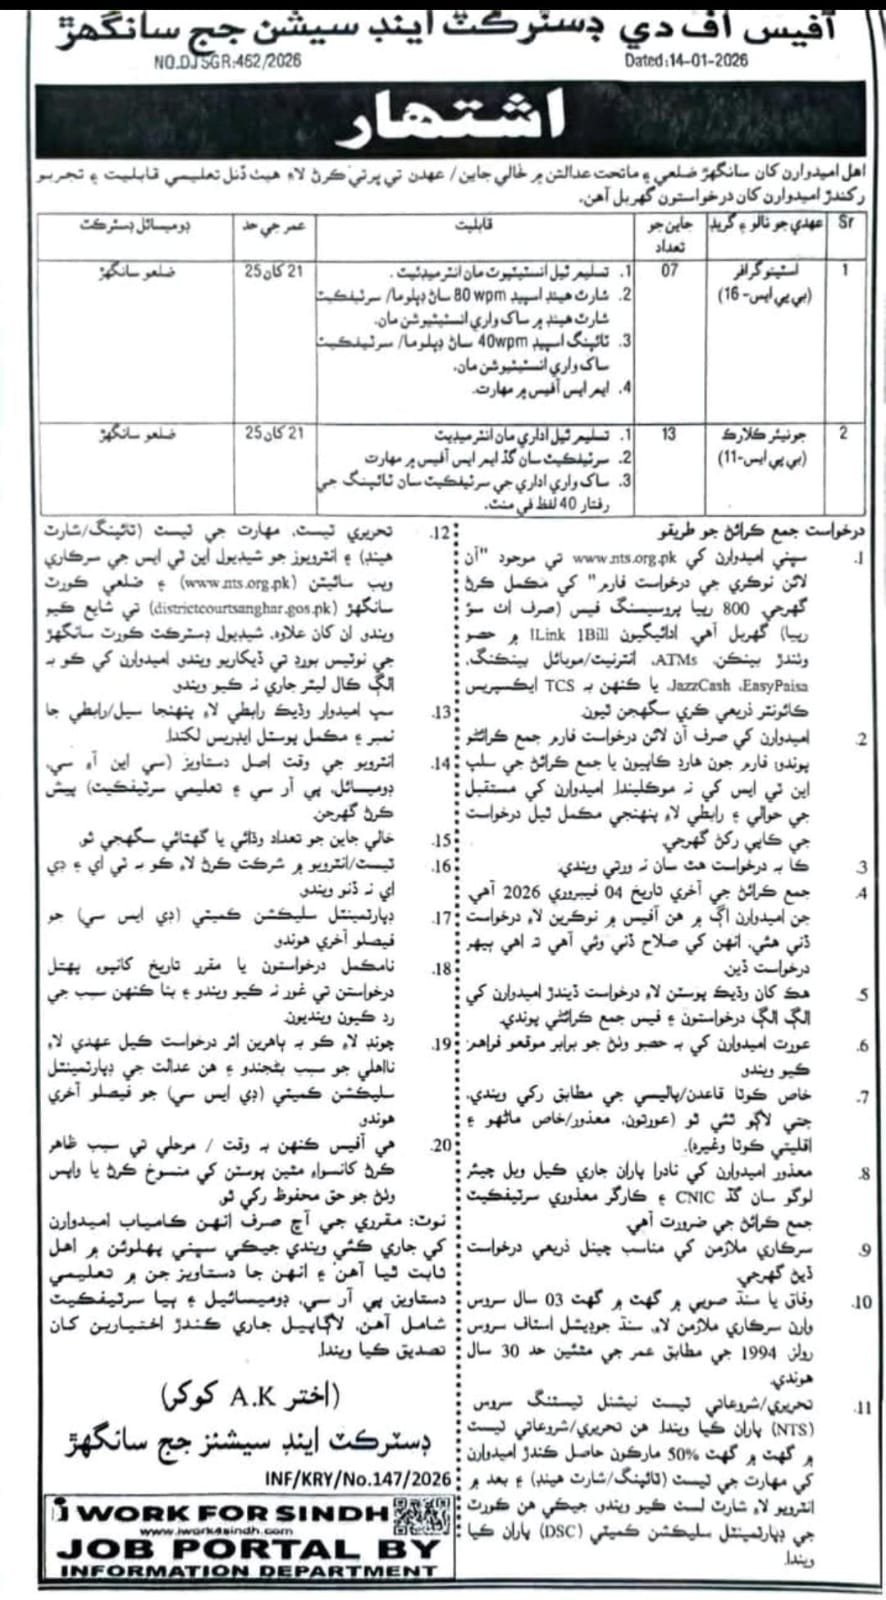 آفيس آف دي ڊسٽرڪٽ اينڊ سيشن جج سانگهڙ
NO.DJSGR:462/2026
Dated:14-01-2026
اشتهار
اهل اميدوارن کان سانگهڙ ضلعي ۽ ماتحت عدالتن ۾ خالي جاين/ عهدن تي ڀرتي ڪرڻ لاءِ هيٺ ڏنل تعليمي قابليت ۽ تجربو
رکندڙ اميدوارن کان درخواستون گهربل آهن.
Sr عهدي جو نالو ۽ گريڊ جاين جو تعداد قابليت عمر جي حد ڊوميسائل ڊسٽرڪٽ
1 اسٽينوگرافر (بي پي ايس- 16) 07 21 کان 25 ضلعو سانگهڙ
1. تسليم ٿيل انسٽيٽيوٽ مان انٽرميڊئيٽ.
2. شارٽ هينڊ اسپيڊ 80 wpm ساڻ ڊپلوما/ سرٽيفڪيٽ
شارٽ هينڊ ۾ ساک واري انسٽيٽيوشن مان.
3. ٽائپنگ اسپيڊ 40wpm ساڻ ڊپلوما/ سرٽيفڪيٽ
ساک واري انسٽيٽيوشن مان.
4. ايم ايس آفيس ۾ مهارت.
2 جونيئر ڪلارڪ (بي پي ايس-11) 13 21 کان 25 ضلعو سانگهڙ
1. تسليم ٿيل اداري مان انٽرميڊيٽ
2. سرٽيفڪيٽ سان گڏ ايم ايس آفيس ۾ مهارت
3. ساک واري اداري جي سرٽيفڪيٽ سان ٽائپنگ جي
رفتار 40 لفظ في منٽ.
درخواست جمع ڪرائڻ جو طريقو
1. سڀني اميدوارن کي www.nts.org.pk تي موجود "آن
لائن نوڪري جي درخواست فارم" کي مڪمل ڪرڻ
گهرجي 800 رپيا پروسيسنگ فيس (صرف اٺ سؤ
رپيا) گهربل آهي ادائيگيون 1Link 1Bill ۾ حصو
وٺندڙ بينڪن، ATMs، انٽرنيٽ/موبائل بينڪنگ،
JazzCash ،EasyPaisa، يا ڪنهن بہ TCS ايڪسپريس
ڪائونٽر ذريعي ڪري سگهجن ٿيون.
2. اميدوارن کي صرف آن لائن درخواست فارم جمع ڪرائڻو
پوندو، فارم جون هارڊ ڪاپيون يا جمع ڪرائڻ جي سلپ
اين ٽي ايس کي نہ موڪليندا. اميدوارن کي مستقبل
جي حوالي ۽ رابطي لاءِ پنهنجي مڪمل ٿيل درخواست
جي ڪاپي رکڻ گهرجي.
3. ڪا بہ درخواست هٿ سان نہ ورتي ويندي.
4. جمع ڪرائڻ جي آخري تاريخ 04 فيبروري 2026 آهي
جن اميدوارن اڳ ۾ هن آفيس ۾ نوڪرين لاءِ درخواست
ڏني هئي، انهن کي صلاح ڏني وئي آهي تہ اهي ٻيهر
درخواست ڏين.
5. هڪ کان وڌيڪ پوسٽن لاءِ درخواست ڏيندڙ اميدوارن کي
الڳ الڳ درخواستون ۽ فيس جمع ڪرائڻي پوندي.
6. عورت اميدوارن کي بہ حصو وٺڻ جو برابر موقعو فراهم
ڪيو ويندو
7. خاص ڪوٽا قاعدن/پاليسي جي مطابق رکي ويندي،
جتي لاڳو ٿئي ٿو (عورتون، معذور/خاص ماڻهو ۽
اقليتي ڪوٽا وغيره).
8. معذور اميدوارن کي نادرا پاران جاري ڪيل ويل چيئر
لوگو سان گڏ CNIC ۽ ڪارگر معذوري سرٽيفڪيٽ
جمع ڪرائڻ جي ضرورت آهي.
9. سرڪاري ملازمن کي مناسب چينل ذريعي درخواست
ڏيڻ گهرجي.
10. وفاق يا سنڌ صوبي ۾ گهٽ ۾ گهٽ 03 سال سروس
وارن سرڪاري ملازمن لاءِ، سنڌ جوڊيشل اسٽاف سروس
رولز 1994 جي مطابق عمر جي مٿئين حد 30 سال
هوندي.
11. تحريري/شروعاتي ٽيسٽ نيشنل ٽيسٽنگ سروس
(NTS) پاران ڪيا ويندا. هن تحريري/شروعاتي ٽيسٽ
۾ گهٽ ۾ گهٽ 50% مارڪون حاصل ڪندڙ اميدوارن
کي مهارت جي ٽيسٽ (ٽائپنگ/شارٽ هينڊ) ۽ بعد ۾
انٽرويو لاءِ شارٽ لسٽ ڪيو ويندو، جيڪي هن ڪورٽ
جي ڊپارٽمينٽل سليڪشن ڪميٽي (DSC) پاران ڪيا
ويندا.
12. تحريري ٽيسٽ، مهارت جي ٽيسٽ (ٽائپنگ/شارٽ
هينڊ) ۽ انٽرويوز جو شيڊيول اين ٽي ايس جي سرڪاري
ويب سائيٽن (www.nts.org.pk) ۽ ضلعي ڪورٽ
سانگهڙ (districtcourtsanghar.gos.pk) تي شايع ڪيو
ويندو ان کان علاوه، شيڊيول ڊسٽرڪٽ ڪورٽ سانگهڙ
جي نوٽيس بورڊ تي ڏيکاريو ويندو اميدوارن کي ڪو بہ
الڳ ڪال ليٽر جاري نہ ڪيو ويندو
13. سڀ اميدوار وڌيڪ رابطي لاءِ پنهنجا سيل/رابطي جا
نمبر ۽ مڪمل پوسٽل ايڊريس لکندا.
14. انٽرويو جي وقت اصل دستاويز (سي اين آءِ سي،
ڊوميسائل، پي آر سي ۽ تعليمي سرٽيفڪيٽ) پيش
ڪرڻ گهرجن.
15. خالي جاين جو تعداد وڌائي يا گهٽائي سگهجي ٿو.
16. ٽيسٽ/انٽرويو ۾ شرڪت ڪرڻ لاءِ ڪو بہ ٽي اي ۽ ڊي
اي نہ ڏنو ويندو
17. ڊپارٽمينٽل سليڪشن ڪميٽي (ڊي ايس سي) جو
فيصلو آخري هوندو
18. نامڪمل درخواستون يا مقرر تاريخ کانپوءِ پهتل
درخواستن تي غور نہ ڪيو ويندو ۽ بنا ڪنهن سبب جي
رد ڪيون وينديون.
19. چونڊ لاءِ ڪو بہ ٻاهرين اثر درخواست ڪيل عهدي لاءِ
نااهلي جو سبب بڻجندو ۽ هن عدالت جي ڊپارٽمينٽل
سليڪشن ڪميٽي (ڊي ايس سي) جو فيصلو آخري
هوندو
20. هي آفيس ڪنهن بہ وقت / مرحلي تي سبب ظاهر
ڪرڻ کانسواءِ مٿين پوسٽن کي منسوخ ڪرڻ يا واپس
وٺڻ جو حق محفوظ رکي ٿو
نوٽ: مقرري جي آڇ صرف انهن ڪامياب اميدوارن
کي جاري ڪئي ويندي جيڪي سڀني پهلوئن ۾ اهل
ثابت ٿيا آهن ۽ انهن جا دستاويز جن ۾ تعليمي
دستاويز، پي آر سي، ڊوميسائيل ۽ ٻيا سرٽيفڪيٽ
شامل آهن، لاڳاپيل جاري ڪندڙ اختيارين کان
تصديق ڪيا ويندا.
(اختر A.K کوکر)
ڊسٽرڪٽ اينڊ سيشنز جج سانگهڙ
INF/KRY/No.147/2026
i WORK FOR SINDH
www.iwork4sindh.com
JOB PORTAL BY
INFORMATION DEPARTMENT